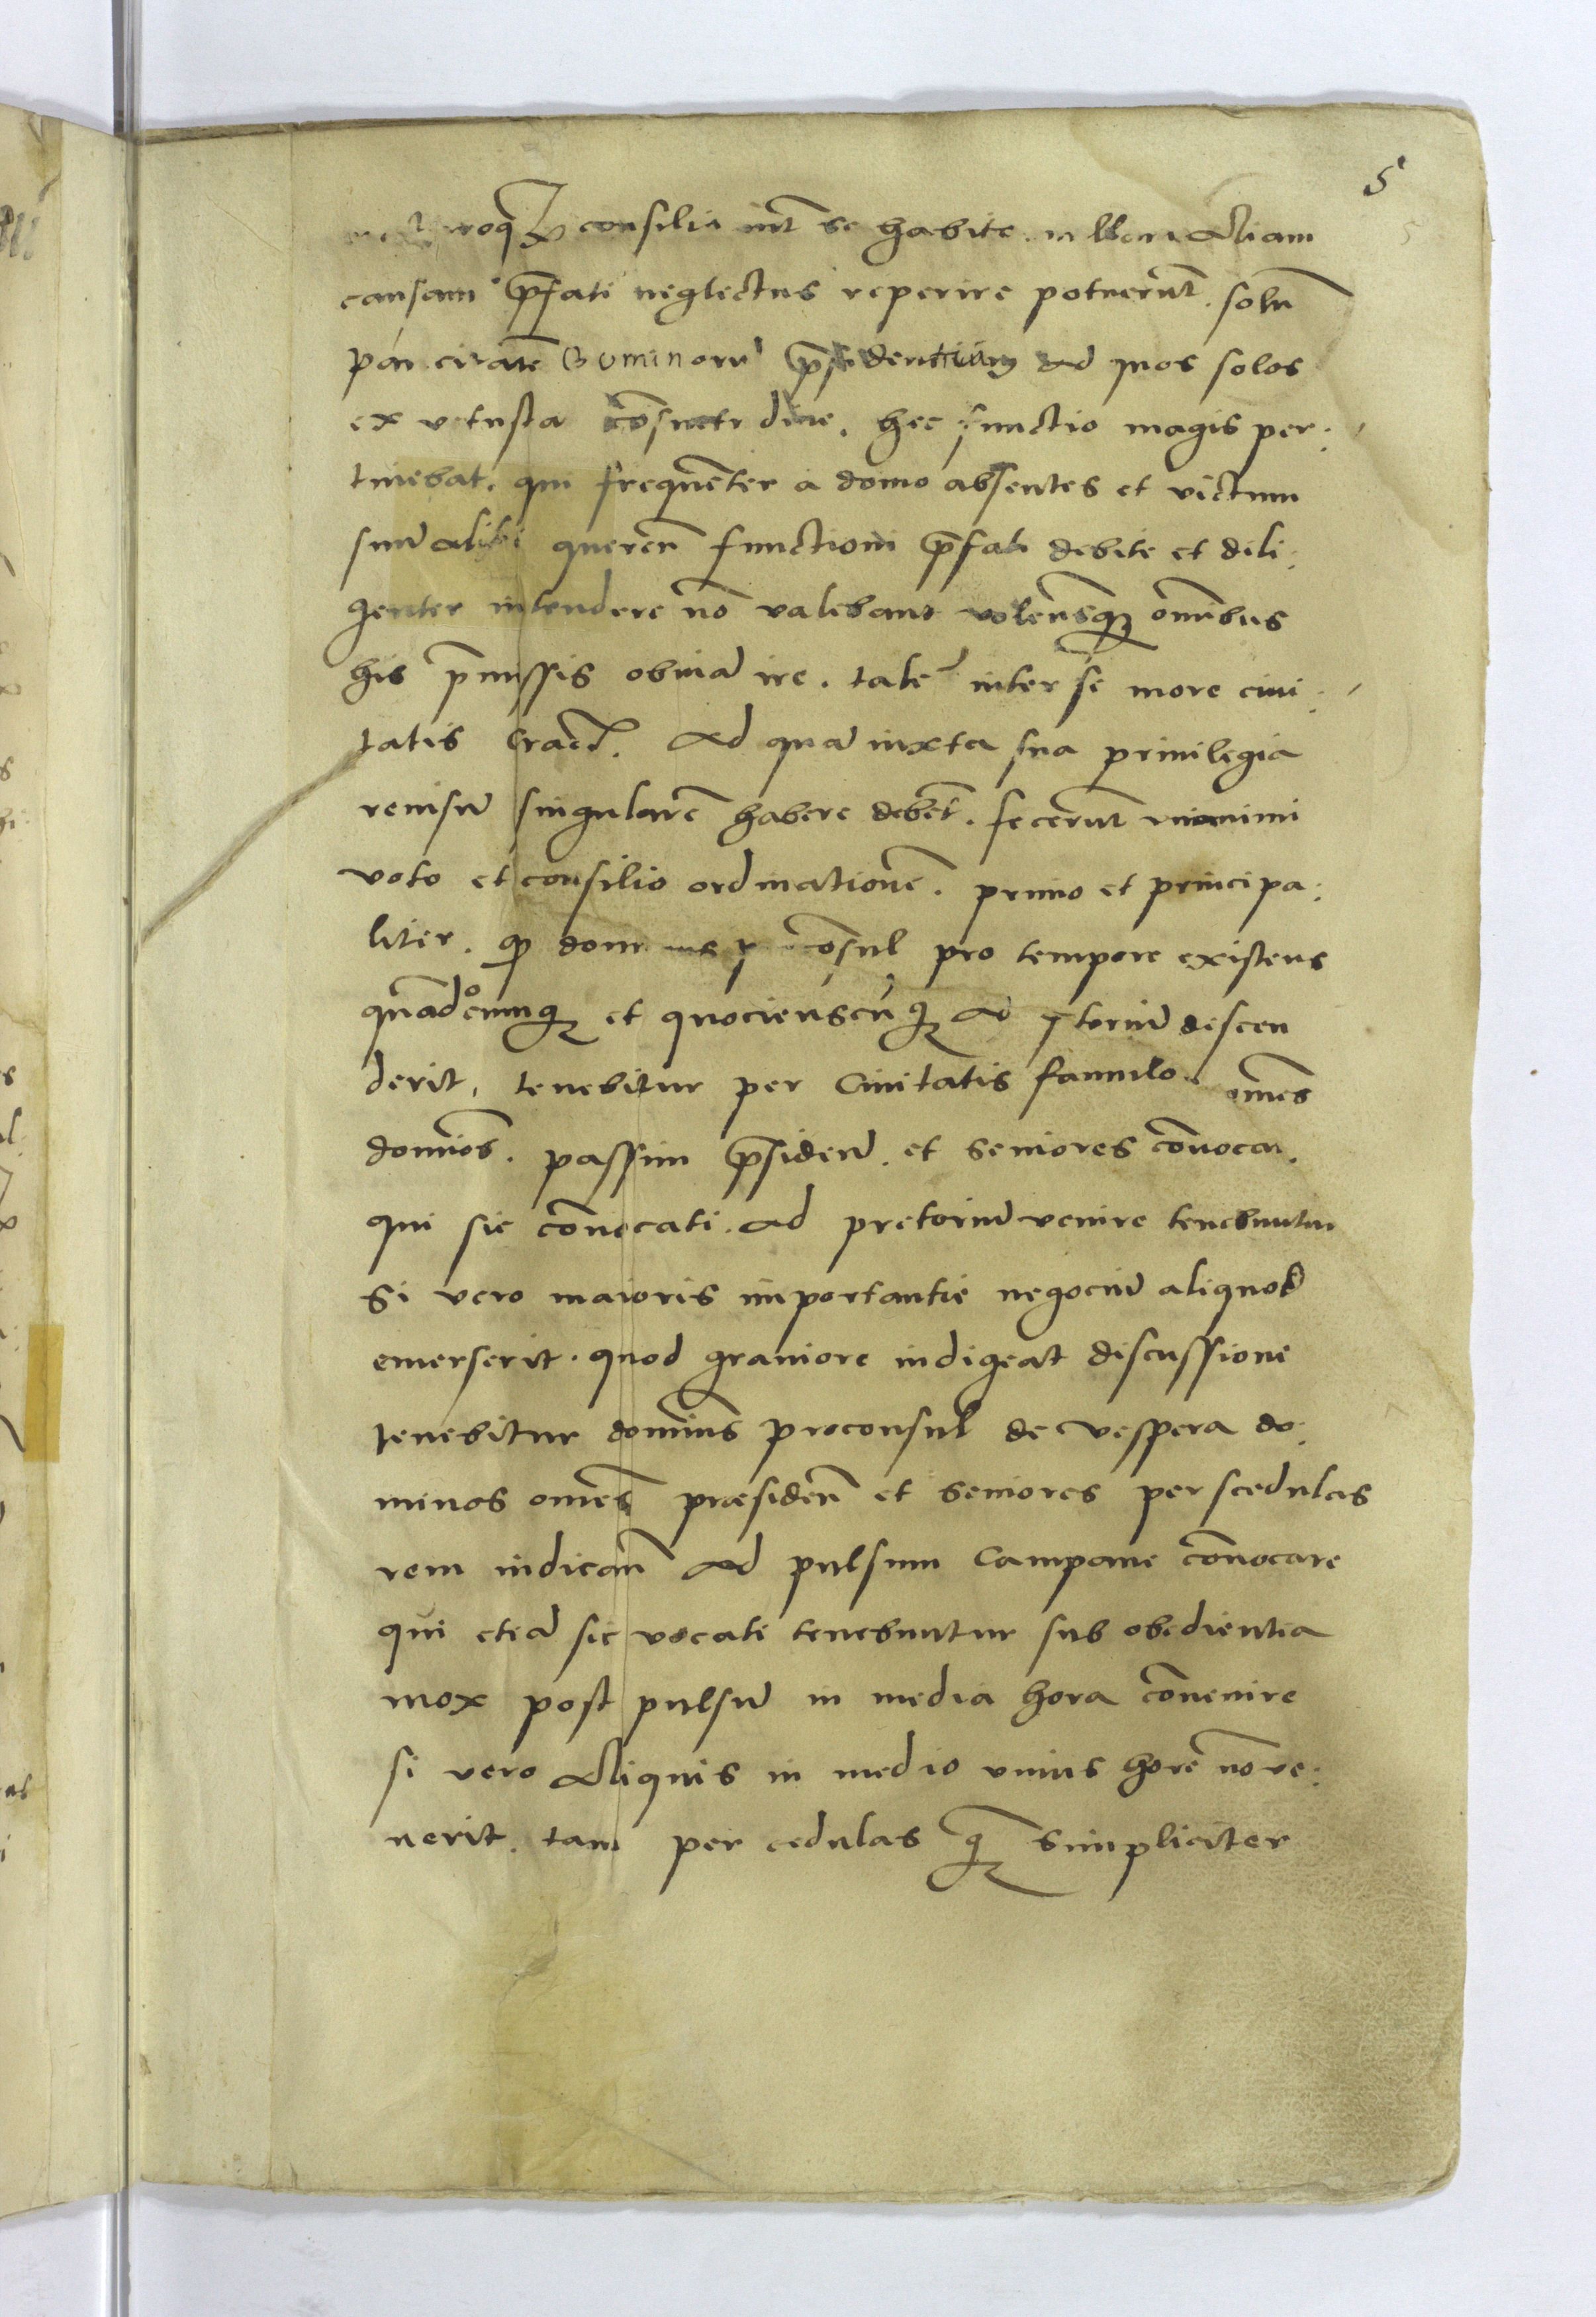 5
consilia int se habite. nullam aliam
causam p̄fati neglectus reperire potuerūt. solū
paucitatē Dominorū p̄sidentium ad quos solos
ex vetusta cōsuetudine. hec functio magis per:
tinebat. qui frequēter a domo absentes et victum
suū alibi querēn functioni p̄fate debite et dili:
genter intendere nō valebant volensqȝ om̄ibus
his p̄missis obviā ire. talē inter se more civi:
tatis Cracō. Ad quā iuxta sua privilegia
revisū singularē habere debēt. fecerūt unanimi
voto et consilio ordinationē. primo et principa:
liter. qđ dominus cōsul pro tempore existens
quādocunqȝ et quocienscūqȝ ad p̄toriū descen
derit, tenebitur per Civitatis famulos om̄es
domīos. passim p̄sidēn. et seniores cōvocar.
qui sic cōvocati. ad pretoriū venire tenebuntur
Si vero maioris importantie negociū aliquod
emerserit. quod graviore indigeat discussione
tenebitur domīus proconsul de vespera do:
minos om̄es præsidēn et seniores per scedulas
rem indicān ad pulsum Campane cōvocare
qui etiā sic vocati tenebuntur sub obedientia
mox post pulsū in media hora cōvenire
si vero aliquis in medio unius horē nō ve:
nerit. tam per cedulas q̄ȝ simpliciter